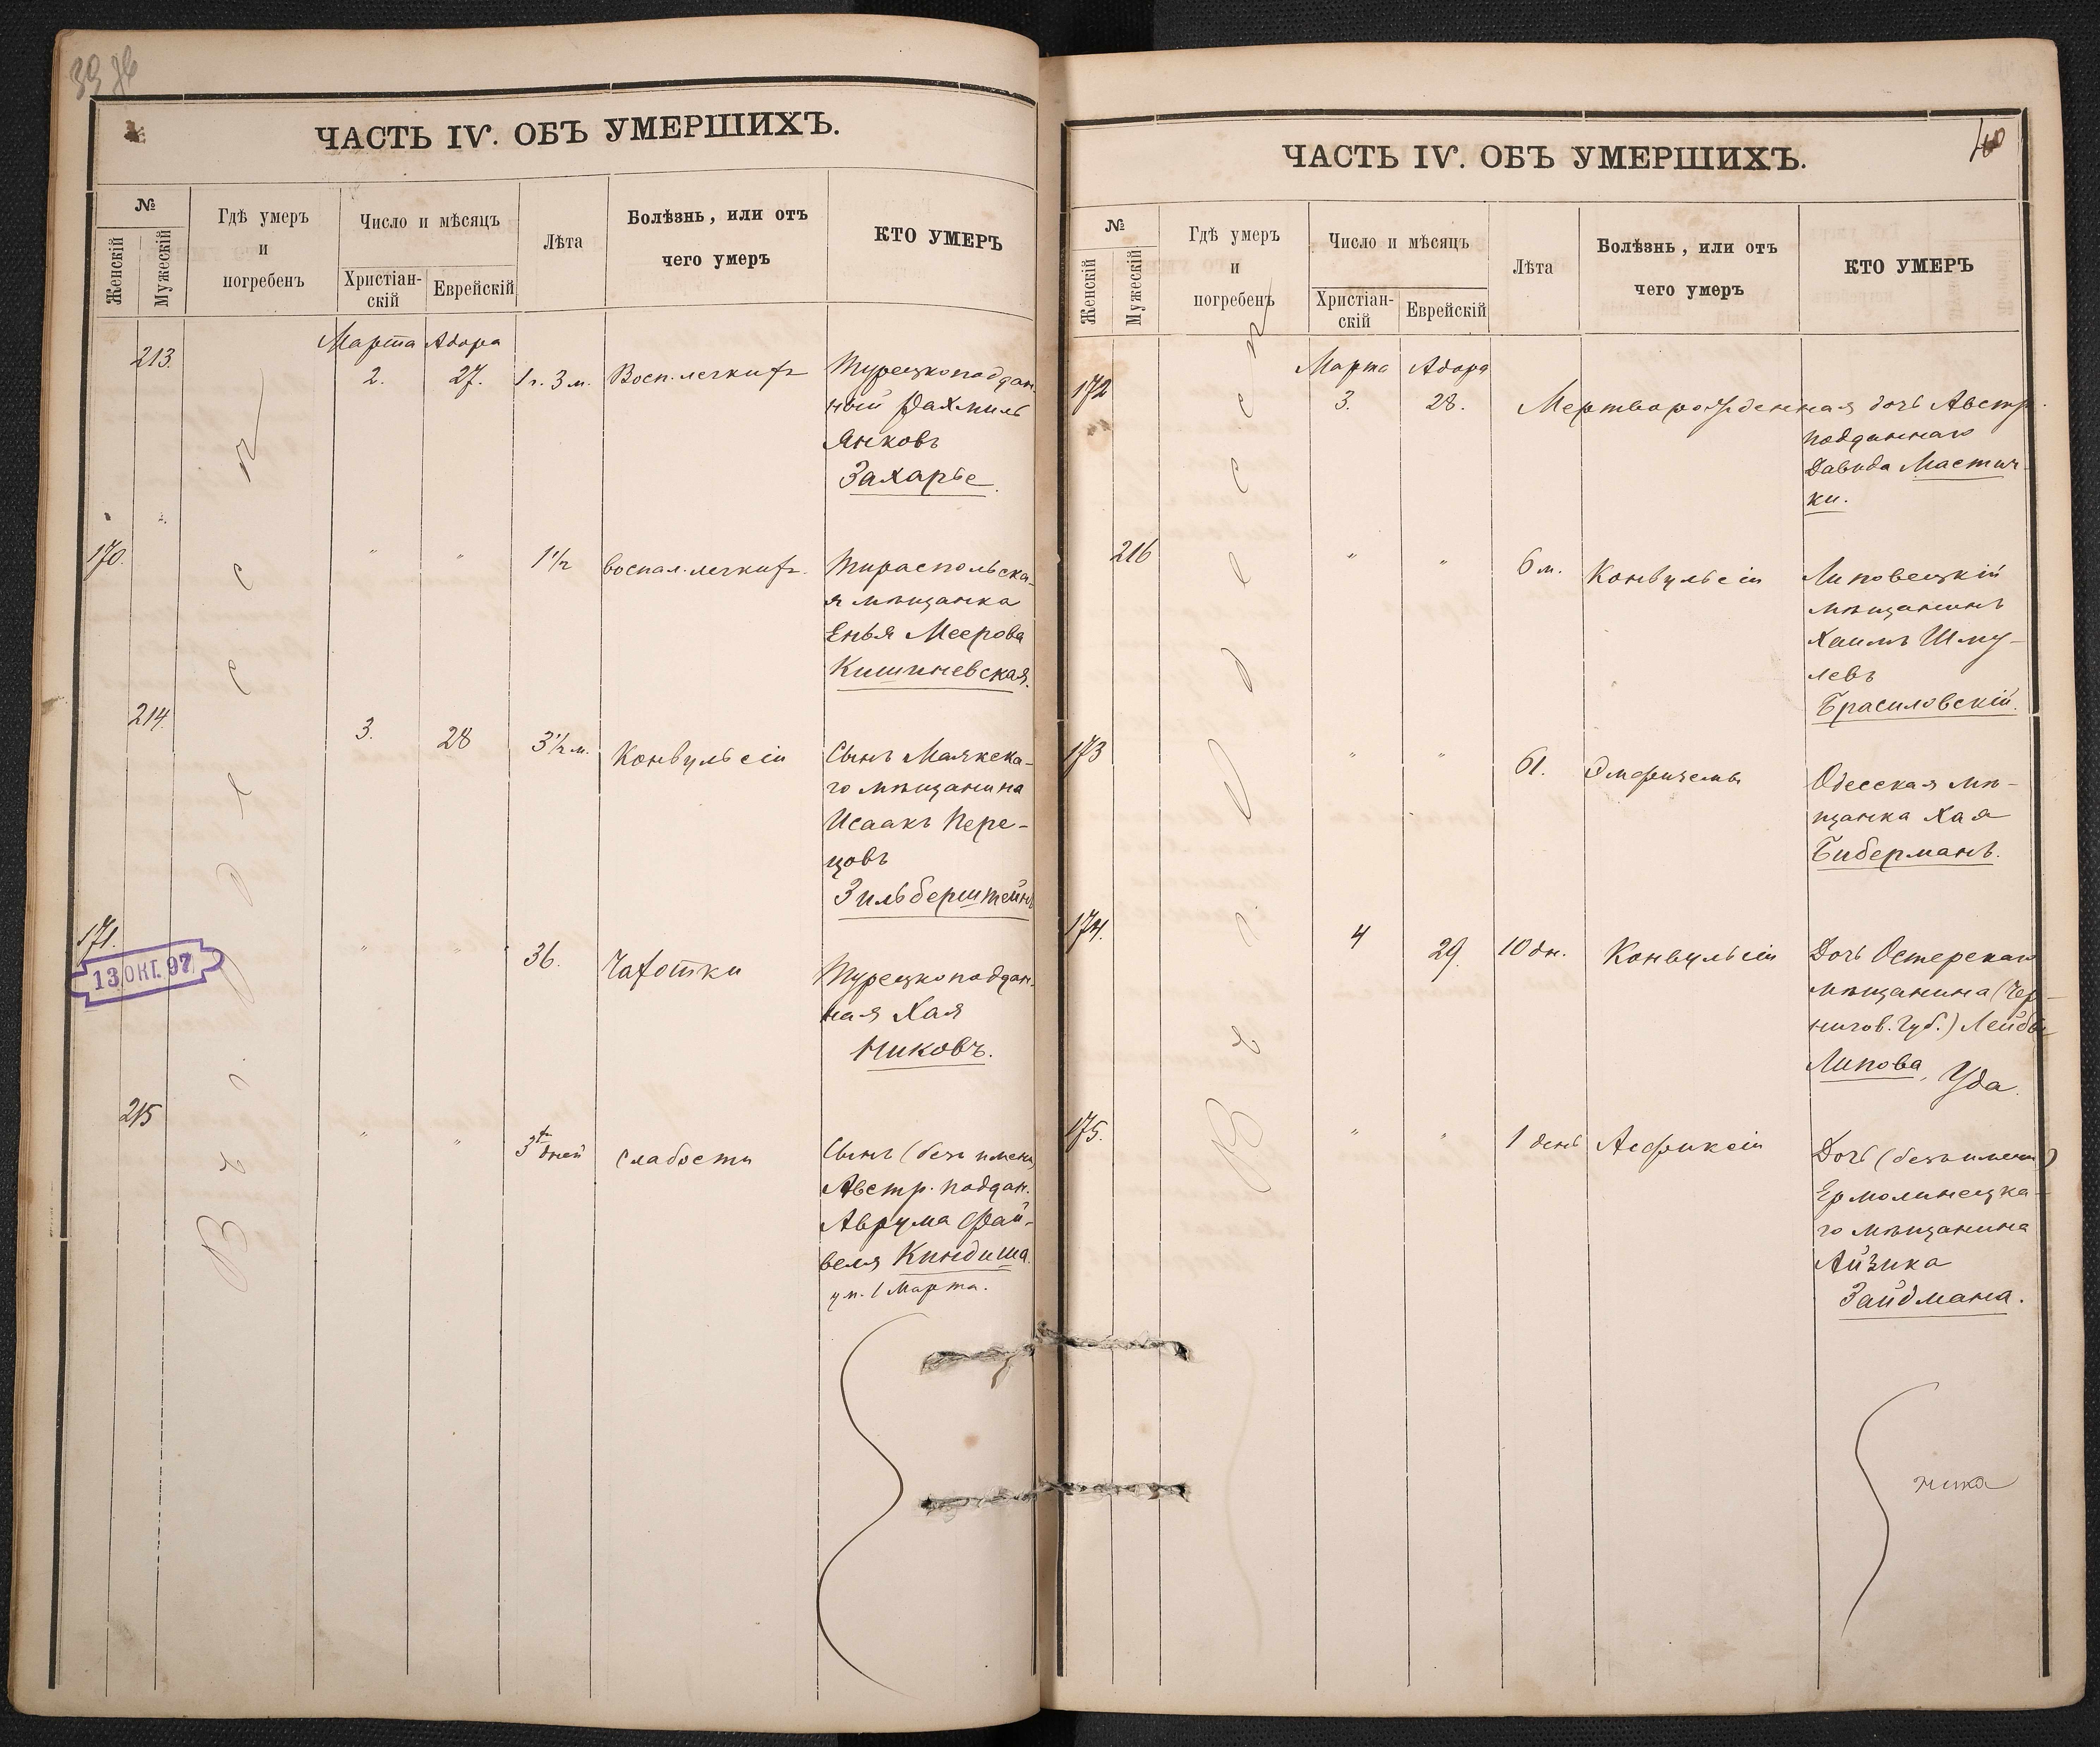 39
ЧАСТЬ IV. ОБЪ УМЕРШИХЪ.
№
Женскій
Мужескій
Гдѣ умеръ
и
погребенъ
Число и мѣсяцъ
Христіан-
скій
Еврейскій
Лѣта
Болѣзнь, или отъ
чего умеръ
КТО УМЕРЪ
Въ г. Одессѣ
Марта Адора
213. 2. 27. 1 г. 3 м. Восп. легкихъ Турецкоподдан-
ный Рахмиль
Янковъ
Захарье.
170. " " 1 1/2 воспал. легкихъ. Тираспольска-
я мѣщанка
Енья Меерова
Кишиневская.
214. 3. 28 3 1/2 м. Конвульсіи Сынъ Маякска-
го мѣщанина
Исаакъ Пере-
цовъ
Зильберштейнъ
171. " " 36. Чахотки Турецкоподдан-
ная Хая
Никовъ.
13 ОКТ. 97
215 " " 3хъ дней Слабости Сынъ (безъ имени)
Австр. поддан.
Аврума Фай-
веля Киндиша.
ум. 1 Марта.
40
ЧАСТЬ IV. ОБЪ УМЕРШИХЪ.
№
Женскій
Мужескій
Гдѣ умеръ
и
погребенъ
Число и мѣсяцъ
Христіан-
скій
Еврейскій
Лѣта
Болѣзнь, или отъ
чего умеръ
КТО УМЕРЪ
Въ г. Одессѣ
Марта Адора
172 3. 28. Мертворожденная дочь Австр.
подданнаго
Давида Мастич-
ки.
216 " " 6 м. Конвульсіи Липовецкій
мѣщанинъ
Хаимъ Шму-
левъ
Брасиловскій.
173 " " 61. Эмфиземы Одесская мѣ-
щанка Хая
Биберманъ.
174. 4 29. 10 дн. Конвульсіи Дочь Остерскаго
мѣщанина (Чер-
нигов. губ.) Лейбы
Липова, Уда.
175. " " 1 день Асфиксіи Дочь (безъ имени)
Ермолинецка-
го мѣщанина
Айзика
Зайдмана.